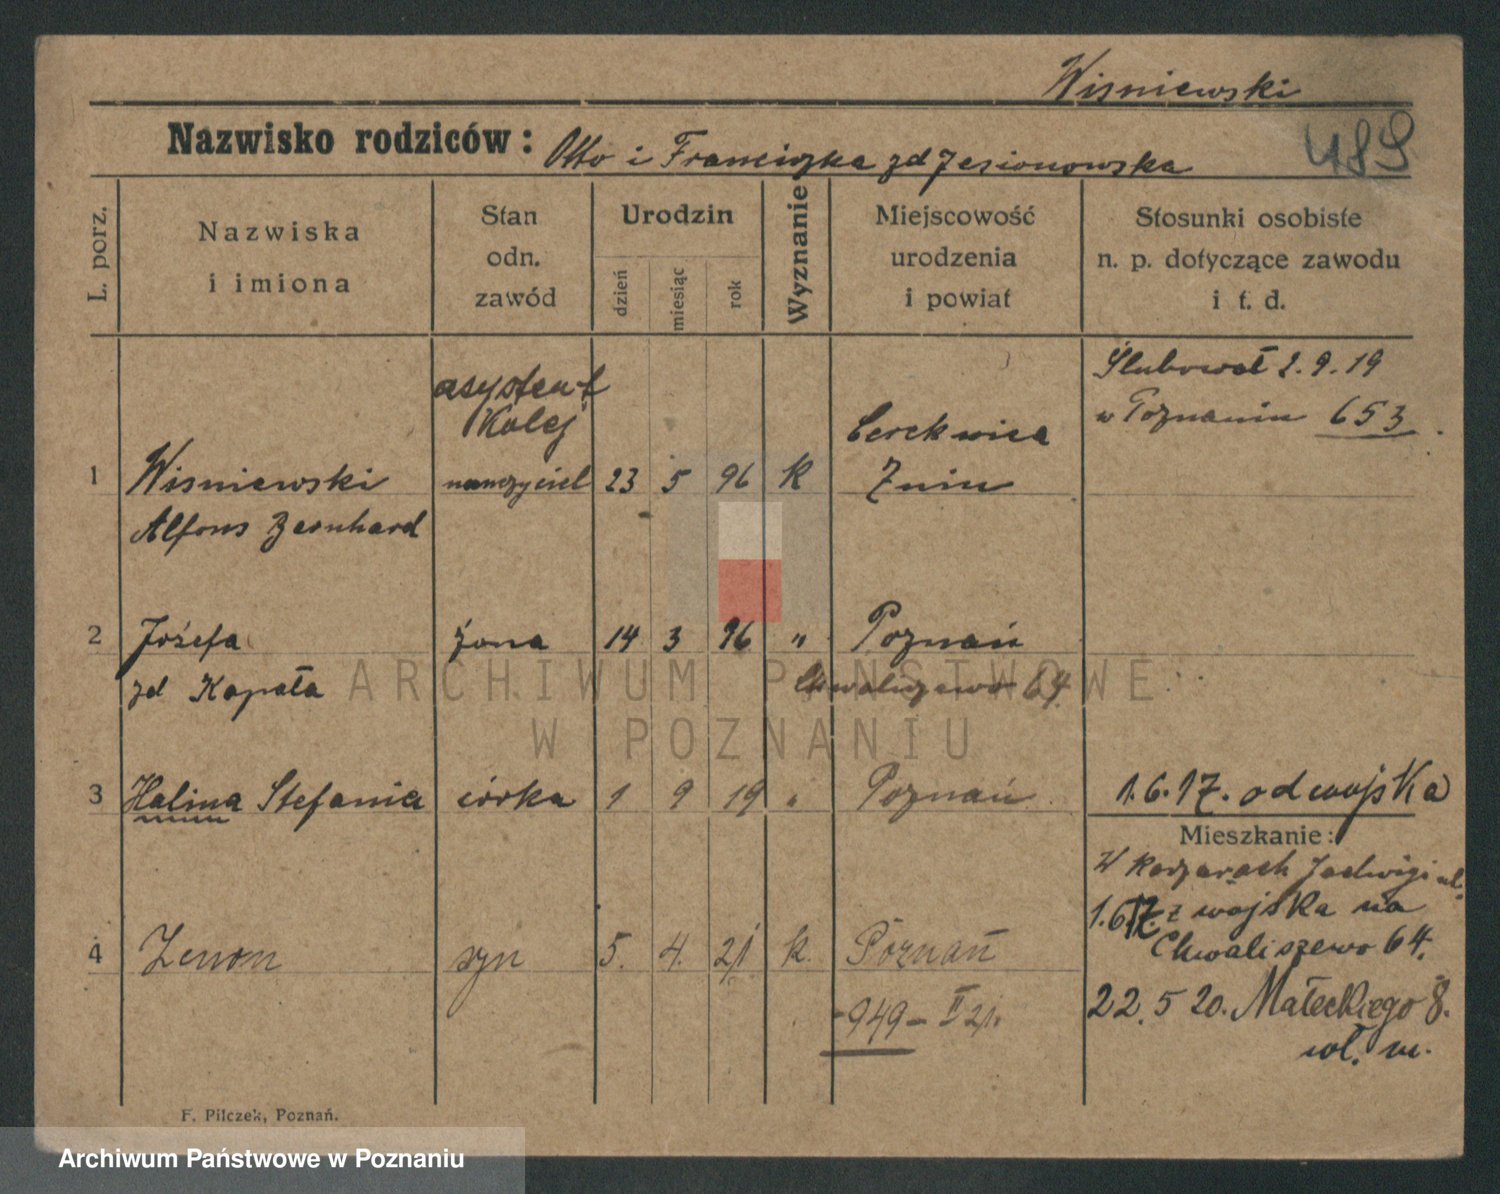 Wisniewski
Nazwisko rodziców: Otto i Franciszka zd Jesionowska
489
L. porz.
Nazwiska
i imiona
Stan
odn.
zawód
Urodzin
dzień
miesiąc
rok
Wyznanie
Miejscowość
urodzenia
i powiat
Stosunki osobiste
n. p. dotyczące zawodu
i t. d.
Ślubował 2.9.19
w Poznaniu 653
asystent
Kolej
1 Wisniewski nauczyciel 23 5 96 k Cerekwica
Żnin
Alfons Bernhard
2 Józefa żona 14 3 96 " Poznań
zd Kapała Chwaliszewo 64.
3 Halina Stefania córka 1 9 19 " Poznań 1.6.17. od wojska
Mieszkanie:
W Koszarach Jadwigi ul.
1.6.17. z wojska na
Chwaliszewo 64.
4 Zenon syn 5. 4. 21 k. Poznań
-949- II 21.
22.5 20. Małeckiego 8.
wł. m.
F. Pilczek, Poznań.
ARCHIWUM PAŃSTWOWE
W POZNANIU
Archiwum Państwowe w Poznaniu